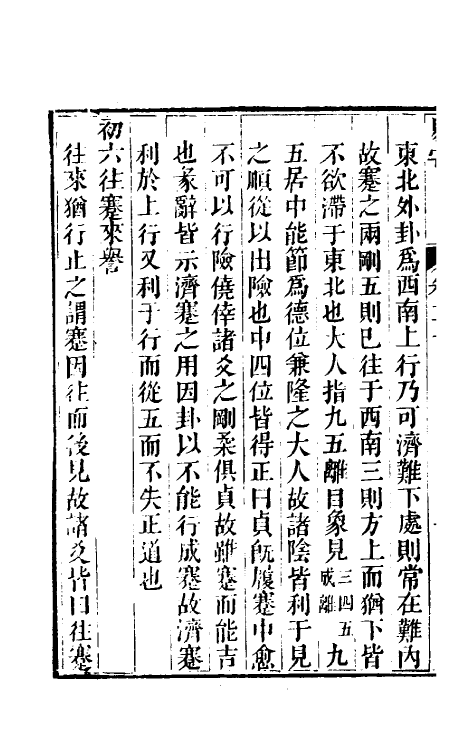 東北外卦爲西南上行乃可濟難下處則常在難內
故蹇之兩剛五則已往于西南三則方上而猶下皆
不欲滯于東北也大人指九五離目象見三四五成離九
五居中能節爲德位兼隆之大人故諸陰皆利于見
之順從以出險也中四位皆得正曰貞旣履蹇中愈
不可以行險僥倖諸爻之剛柔俱貞故雖蹇而能吉
也彖辭皆示濟蹇之用因卦以不能行成蹇故濟蹇
利於上行又利于行而從五而不失正道也
初六往蹇來譽
往來猶行止之謂蹇因往而後見故諸爻皆曰往蹇